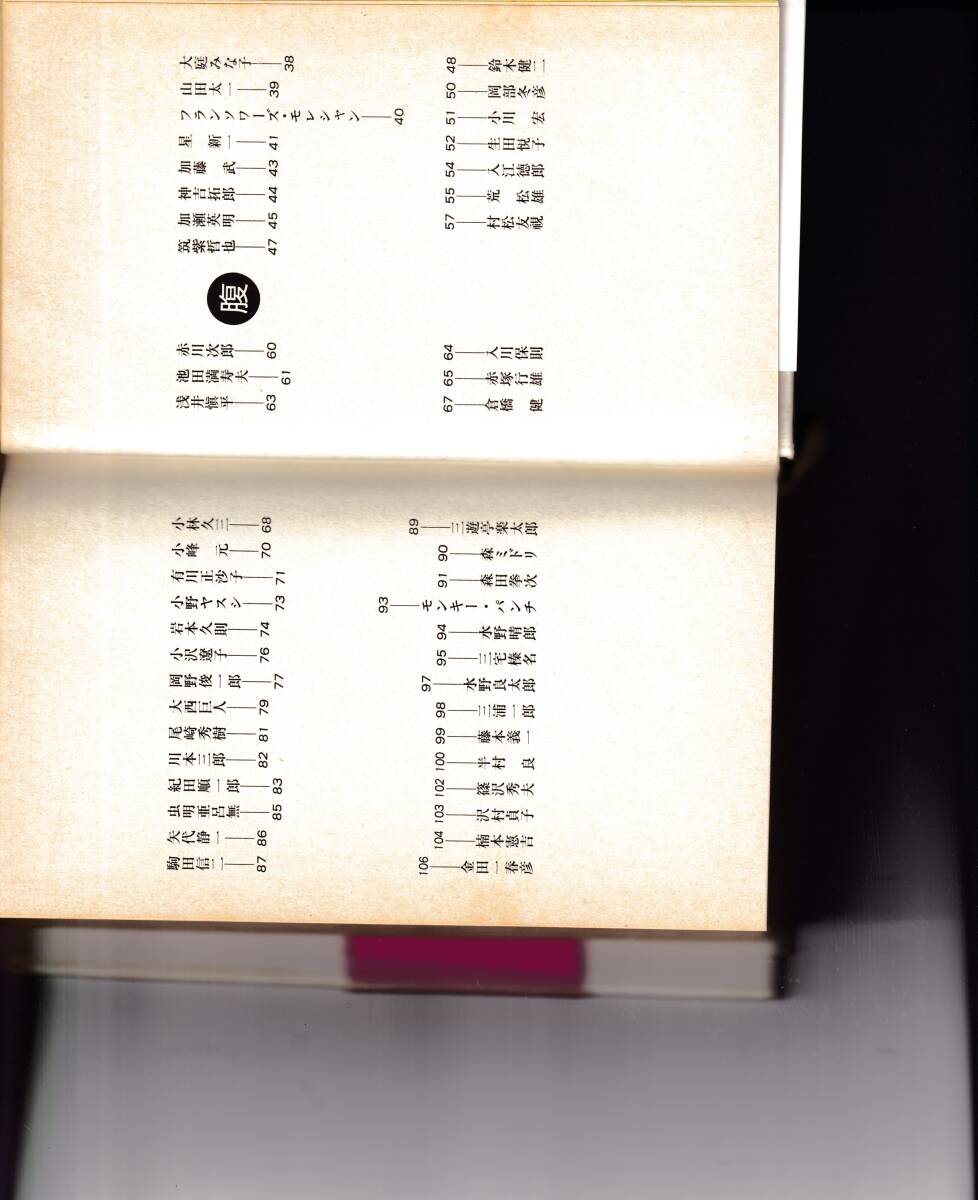 大庭みな子——38
山田太一——39
フランソワーズ・モレシャン——40
星 新一——41
加藤 武——43
神吉拓郎——44
加瀬英明——45
筑紫哲也——47
鈴木健二——48
岡部冬彦——50
小川 宏——51
生田悦子——52
入江徳郎——54
荒 松雄——55
村松友視——57
腹
赤川次郎——60
池田満寿夫——61
浅井愼平——63
入川保則——64
赤塚行雄——65
倉橋 健——67
小林久三——68
小峰 元——70
有川正沙子——71
小野ヤスシ——73
岩本久則——74
小沢遼子——76
岡野俊一郎——77
大西巨人——79
尾崎秀樹——81
川本三郎——82
紀田順一郎——83
虫明亜呂無——85
矢代静一——86
駒田信二——87
三遊亭楽太郎——89
森ミドリ——90
森田拳次——91
モンキー・パンチ——93
水野晴郎——94
三宅榛名——95
水野良太郎——97
三浦一郎——98
藤本義一——99
半村 良——100
篠沢秀夫——102
沢村貞子——103
楠本憲吉——104
金田一春彦——106